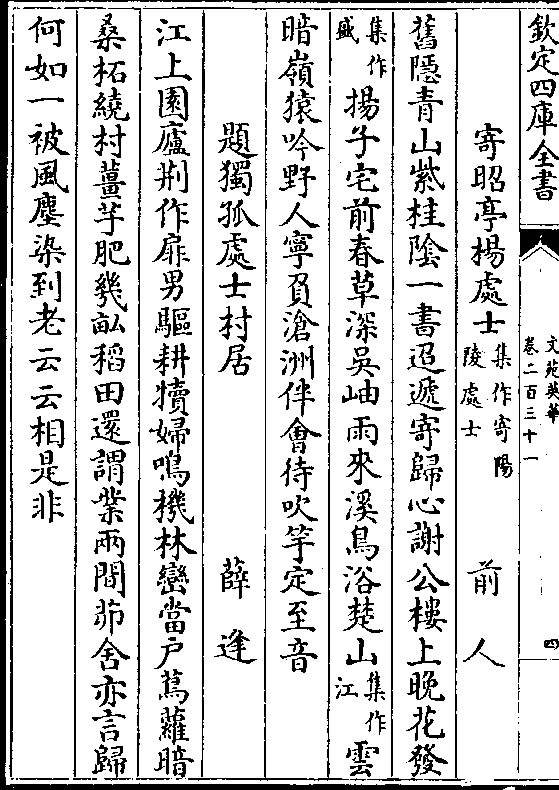 欽定四庫全書
文苑英華
卷二百三十一
四
寄昭亭楊處士集作寄陽陵處士 前人
舊隱青山紫桂陰一書迢遞寄歸心謝公樓上晚花發
集作盛揚子宅前春草深吳岫雨來溪鳥浴楚山集作江雲
暗嶺猿吟野人寧負滄洲伴會待吹竽定至音
題獨孤處士村居 薛逢
江上園廬荆作扉男驅耕犢婦鳴機林巒當户蔦蘿暗
桑柘繞村薑芋肥幾畝稻田還謂業兩間茆舍亦言歸
何如一被風塵染到老云云相是非